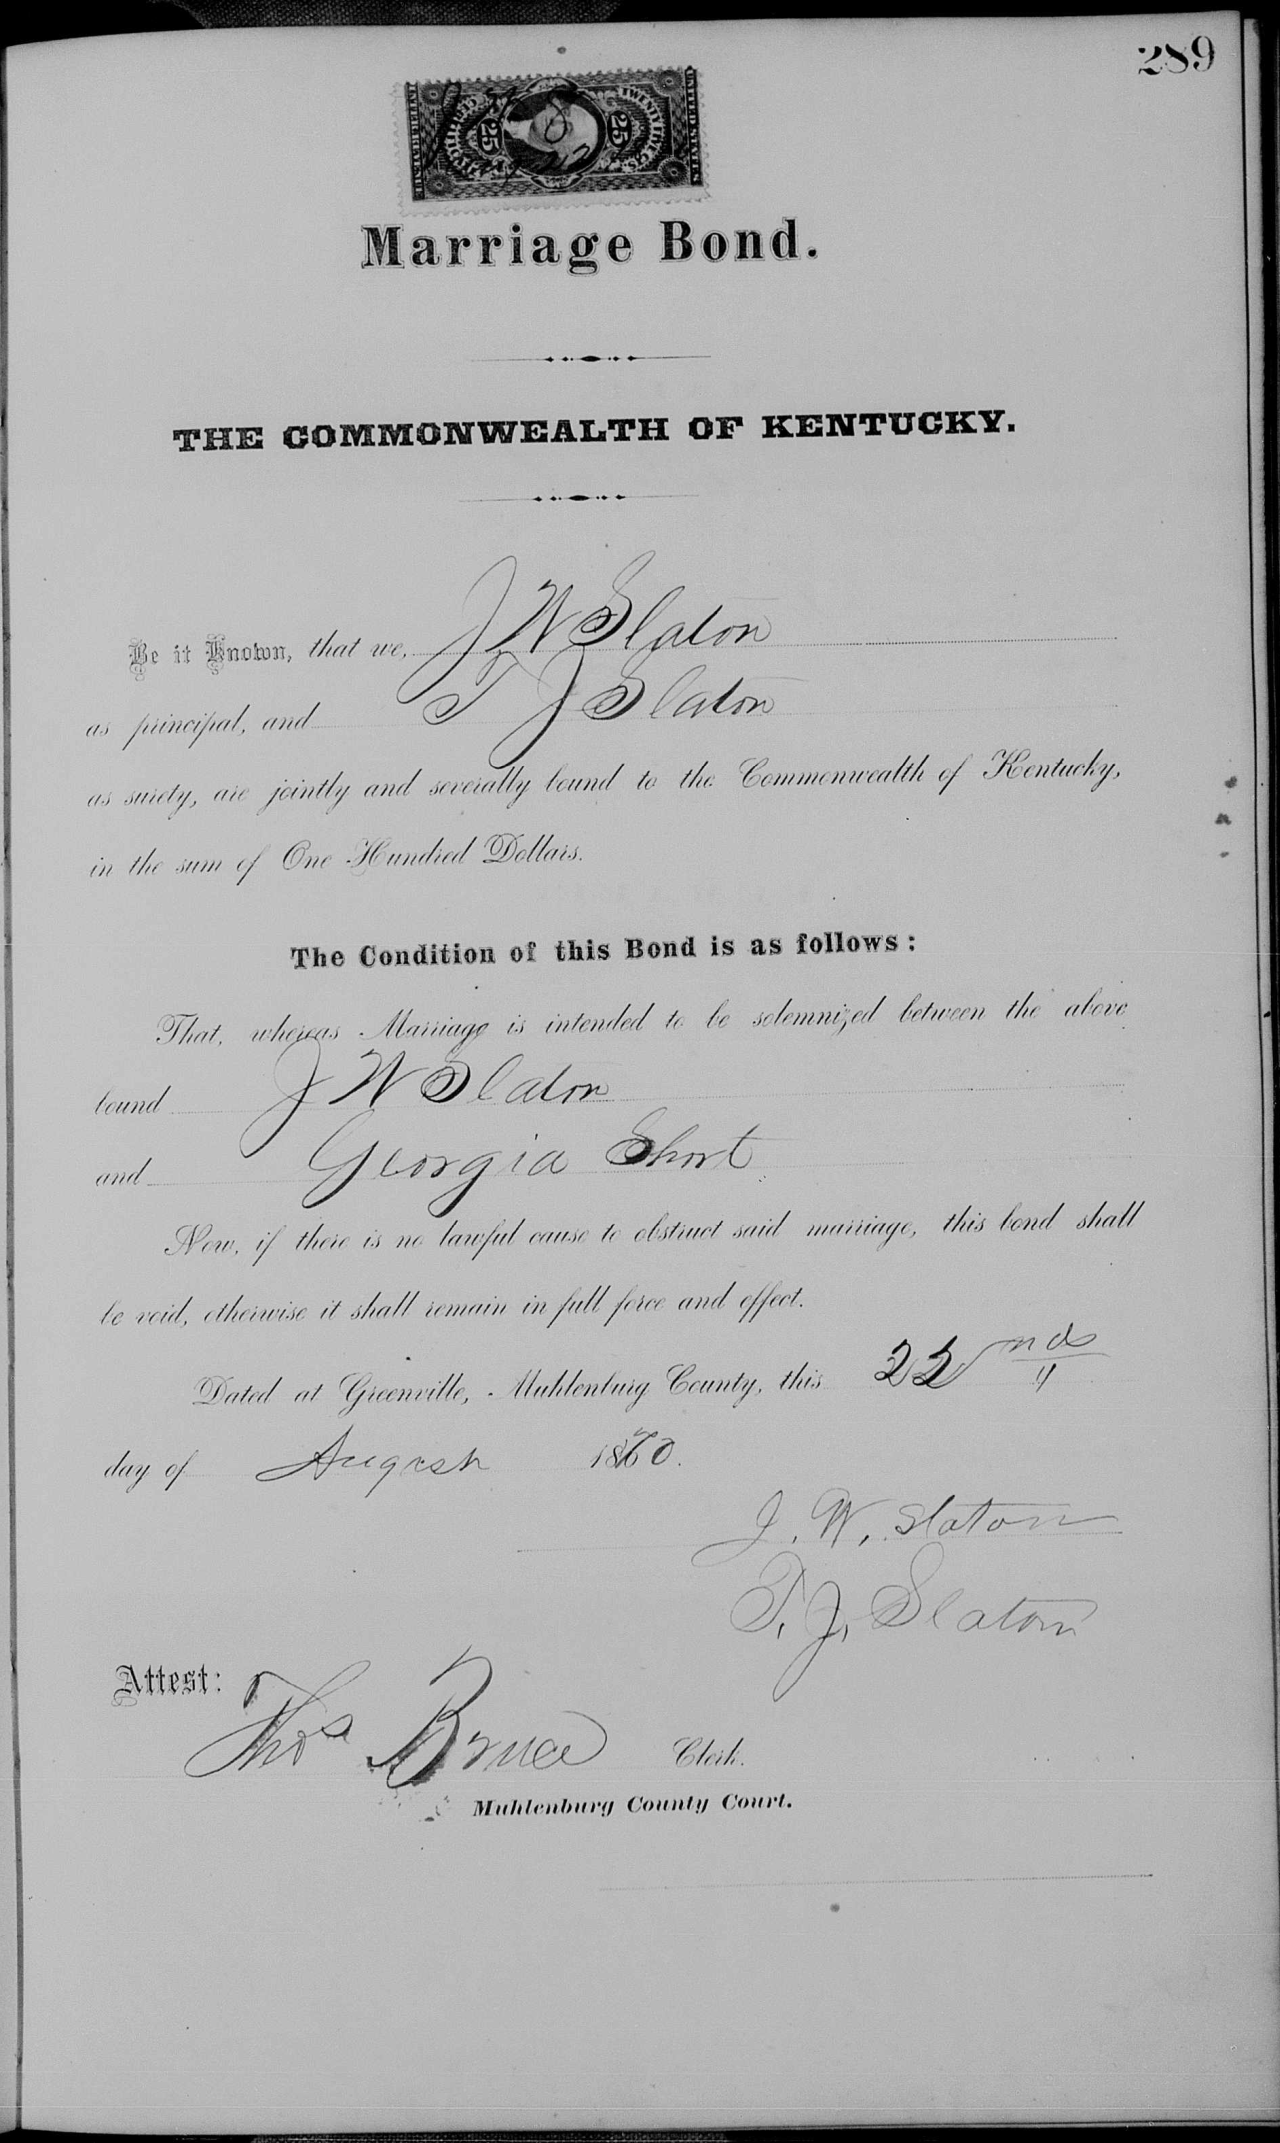 289
UNITED STATES
TWENTY FIVE CTS.
25
25
INTER. REVENUE
Marriage Bond.
THE COMMONWEALTH OF KENTUCKY.
Be it Known, that we, J W Slaton
as principal, and T J Slaton
as surety, are jointly and severally bound to the Commonwealth of Kentucky,
in the sum of One Hundred Dollars.
The Condition of this Bond is as follows:
That, whereas Marriage is intended to be solemnized between the above
bound J W Slaton
and Georgia Short
Now, if there is no lawful cause to obstruct said marriage, this bond shall
be void, otherwise it shall remain in full force and effect.
Dated at Greenville, Muhlenburg County, this 22nd
day of August 1870.
J. W. Slaton
T. J. Slaton
Attest:
Thos Bruce Clerk.
Muhlenburg County Court.